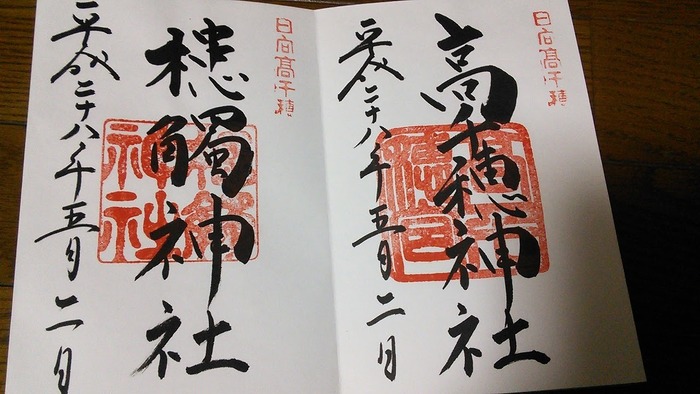 日向髙千穗
高千穗神社
平成二十八年五月二日
日向髙千穗
槵觸神社
平成二十八年五月二日
神社